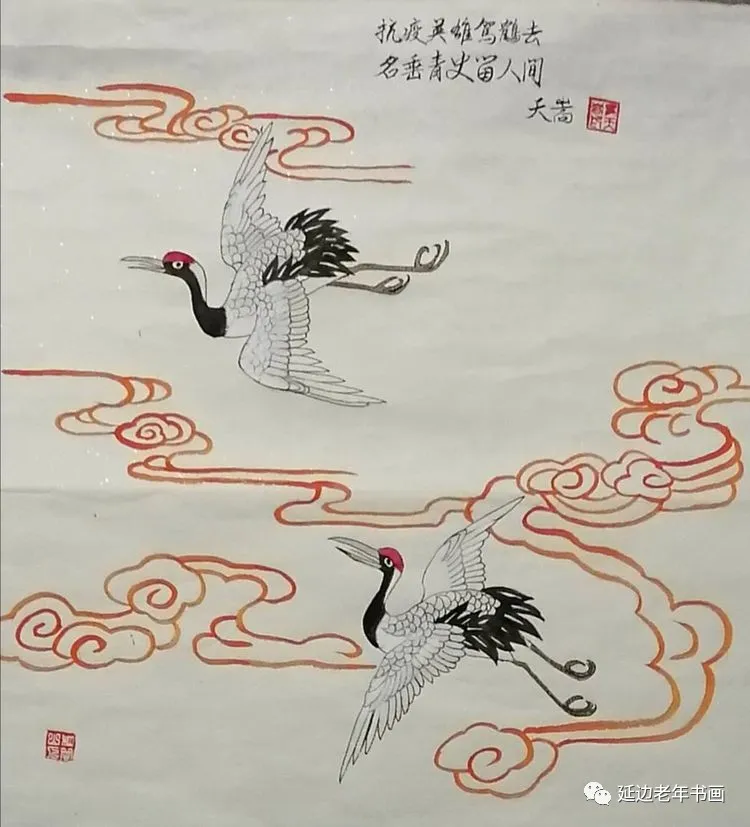 抗疫英雄驾鹤去
名垂青史留人间
天嵩
延边老年书画